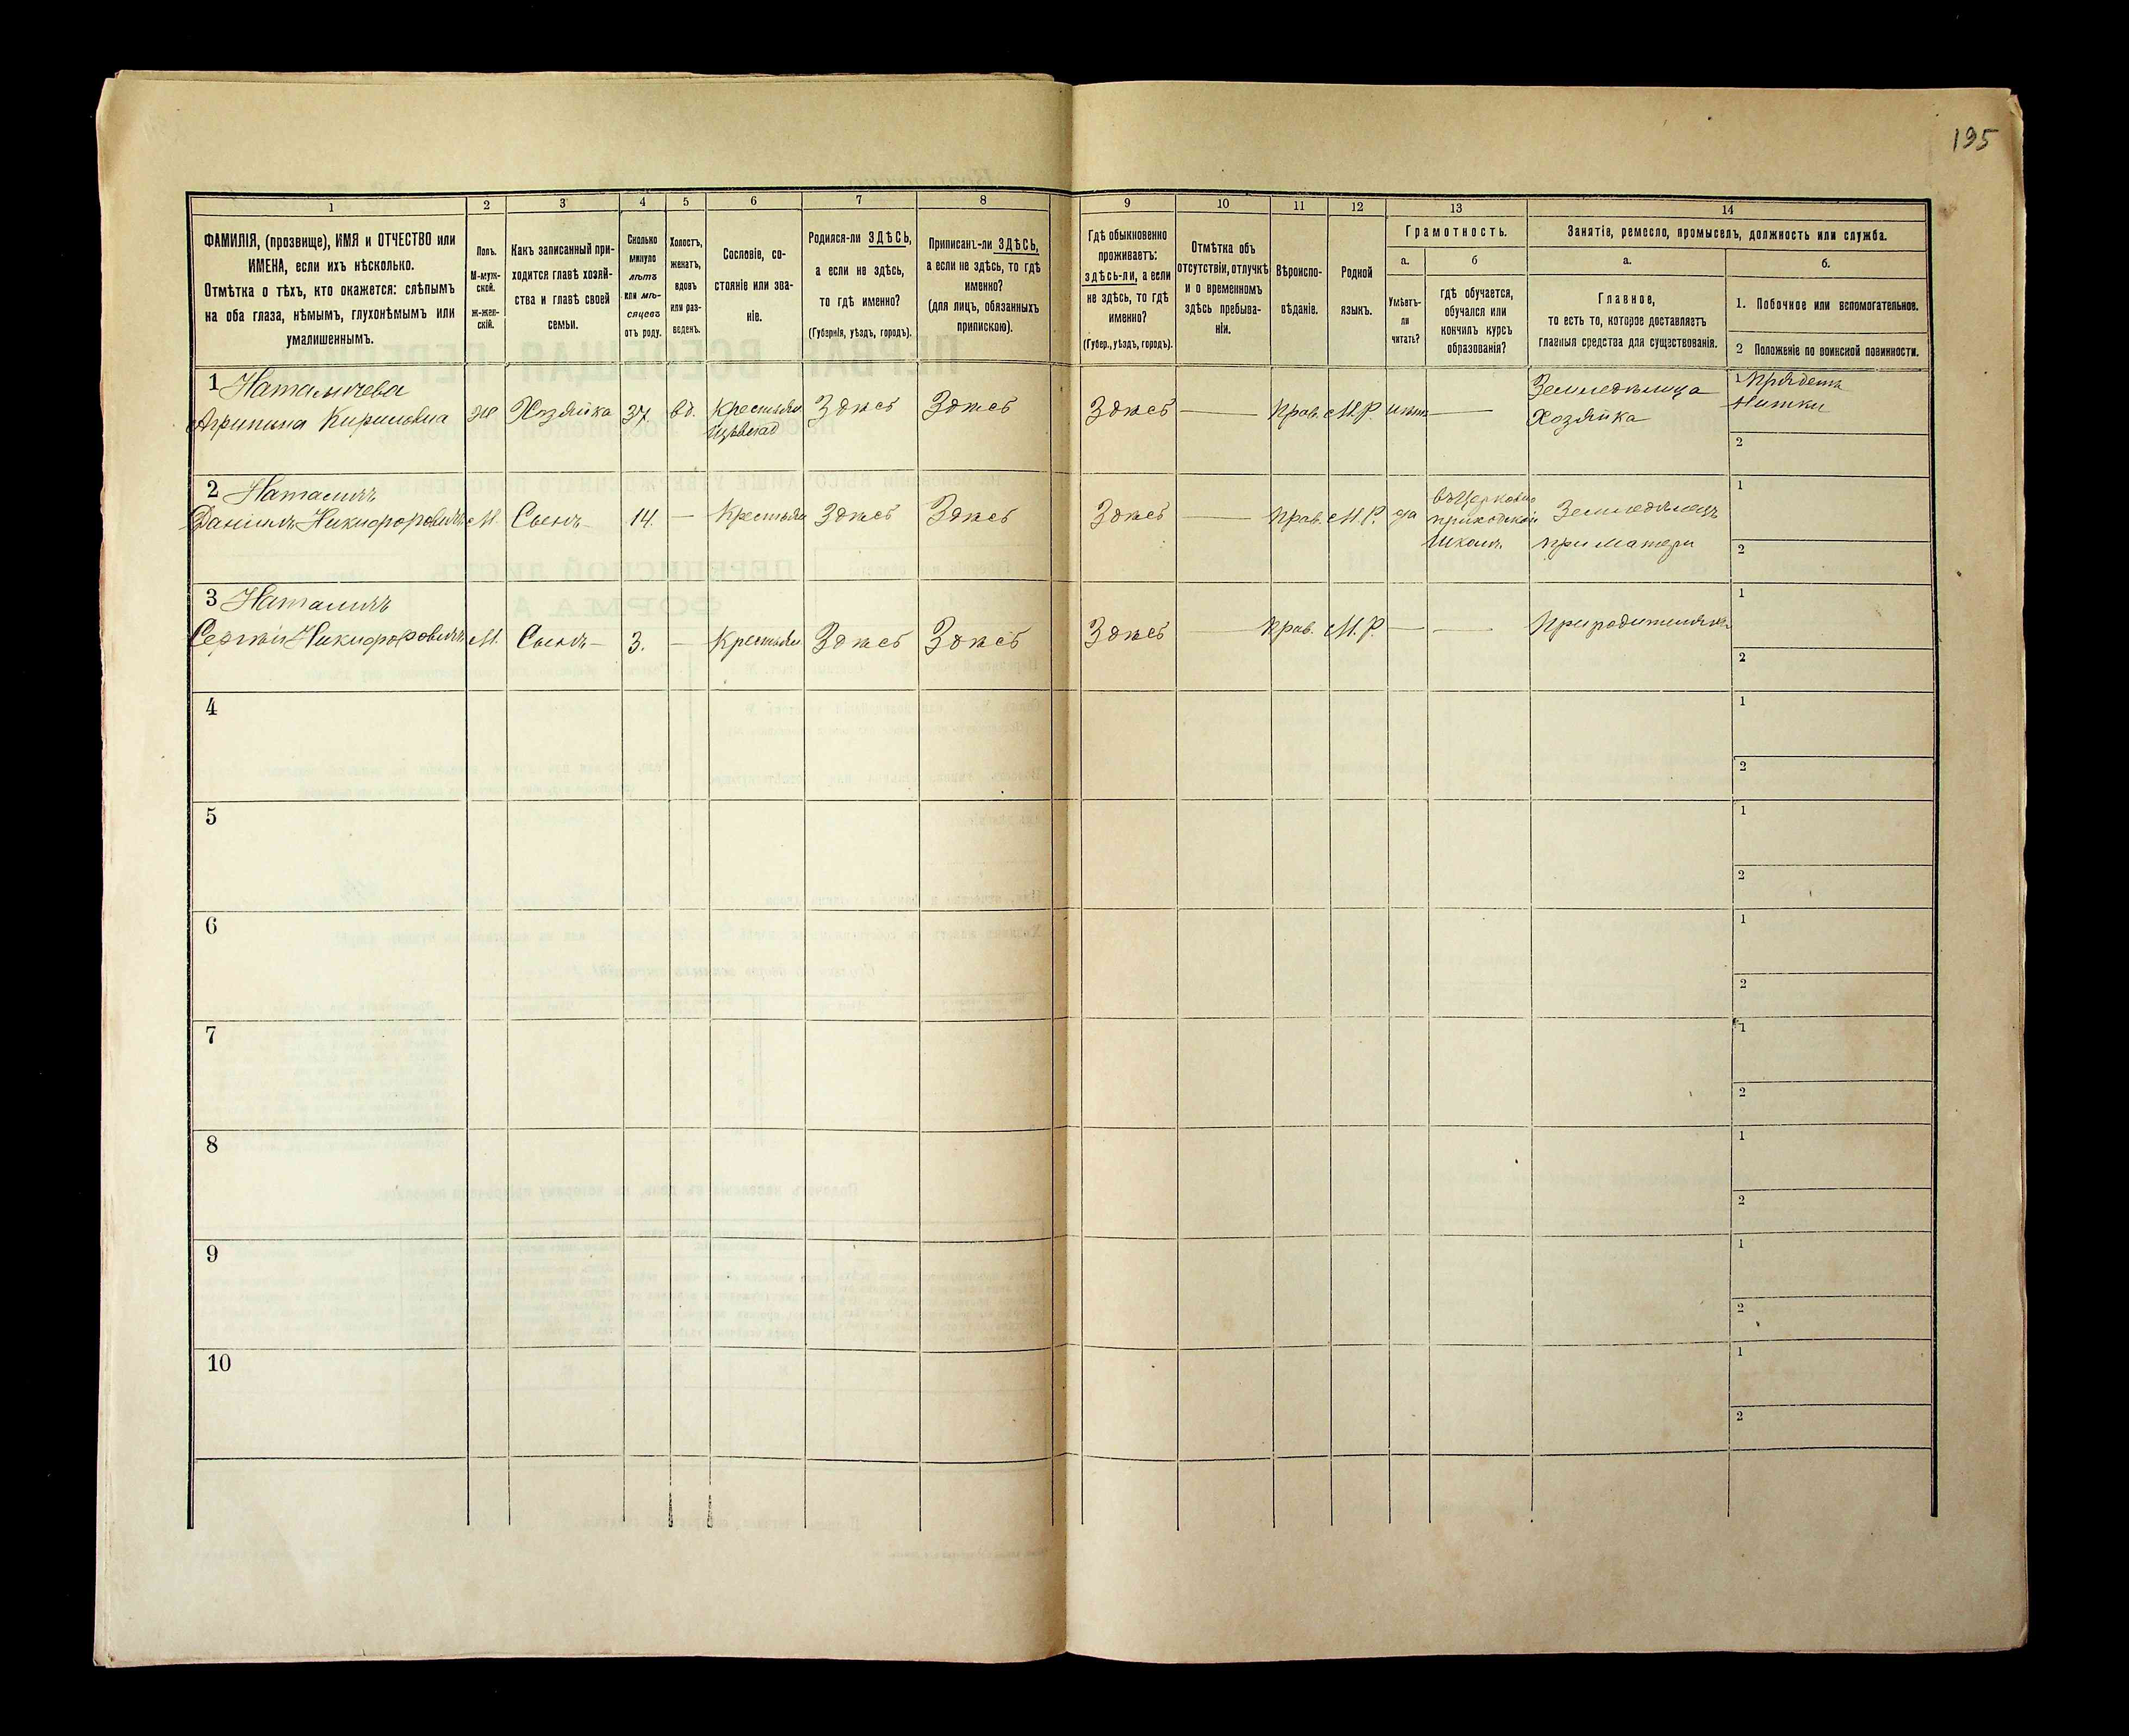 195
1
2
3
4
5
6
7
8
9
10
11
12
13
14
ФАМИЛІЯ, (прозвище), ИМЯ и ОТЧЕСТВО или
ИМЕНА, если ихъ нѣсколько.
Отмѣтка о тѣхъ, кто окажется: слѣпымъ
на оба глаза, нѣмымъ, глухонѣмымъ или
умалишеннымъ.
Полъ.
М-муж-
ской.
Ж-жен-
скій.
Какъ записанный при-
ходится главѣ хозяй-
ства и главѣ своей
семьи.
Сколько
минуло
лѣтъ
или мѣ-
сяцевъ
отъ роду.
Холостъ,
женатъ,
вдовъ
или раз-
веденъ.
Сословіе, со-
стояніе или зва-
ніе.
Родился-ли ЗДѢСЬ,
а если не здѣсь,
то гдѣ именно?
(Губернія, уѣздъ, городъ).
Приписанъ-ли ЗДѢСЬ,
а если не здѣсь, то гдѣ
именно?
(для лицъ, обязанныхъ
припискою).
Гдѣ обыкновенно
проживаетъ:
здѣсь-ли, а если
не здѣсь, то гдѣ
именно?
(Губер., уѣздъ, городъ).
Отмѣтка объ
отсутствіи, отлучкѣ
и о временномъ
здѣсь пребыва-
ніи.
Вѣроиспо-
вѣданіе.
Родной
языкъ.
Грамотность.
а.
Умѣетъ-
ли
читать?
б
гдѣ обучается,
обучался или
кончилъ курсъ
образованія?
Занятіе, ремесло, промыселъ, должность или служба.
а.
Главное,
то есть то, которое доставляетъ
главныя средства для существованія.
б.
1. Побочное или вспомогательное.
2 Положеніе по воинской повинности.
1 Наталичева
Агрипина Кириловна Ж Хозяйка 37 вд. Крестьян Здѣсь Здѣсь Здѣсь — Прав. М.Р. нѣтъ — Земледѣлица
Хозяйка
1 Прядетъ
Нитки
2
2 Наталичъ
Даніилъ Никифоровичъ М. Сынъ 14. — Крестьян Здѣсь Здѣсь Здѣсь — Прав. М.Р. да въ Церковно
приходской
школѣ
Земледѣлецъ
при Матери
1
2
3 Наталичъ
Сергѣй Никифоровичъ М. Сынъ 3. — Крестьян Здѣсь Здѣсь Здѣсь — Прав. М.Р. — — При родителях
1
2
4
1
2
5
1
2
6
1
2
7
1
2
8
1
2
9
1
2
10
1
2